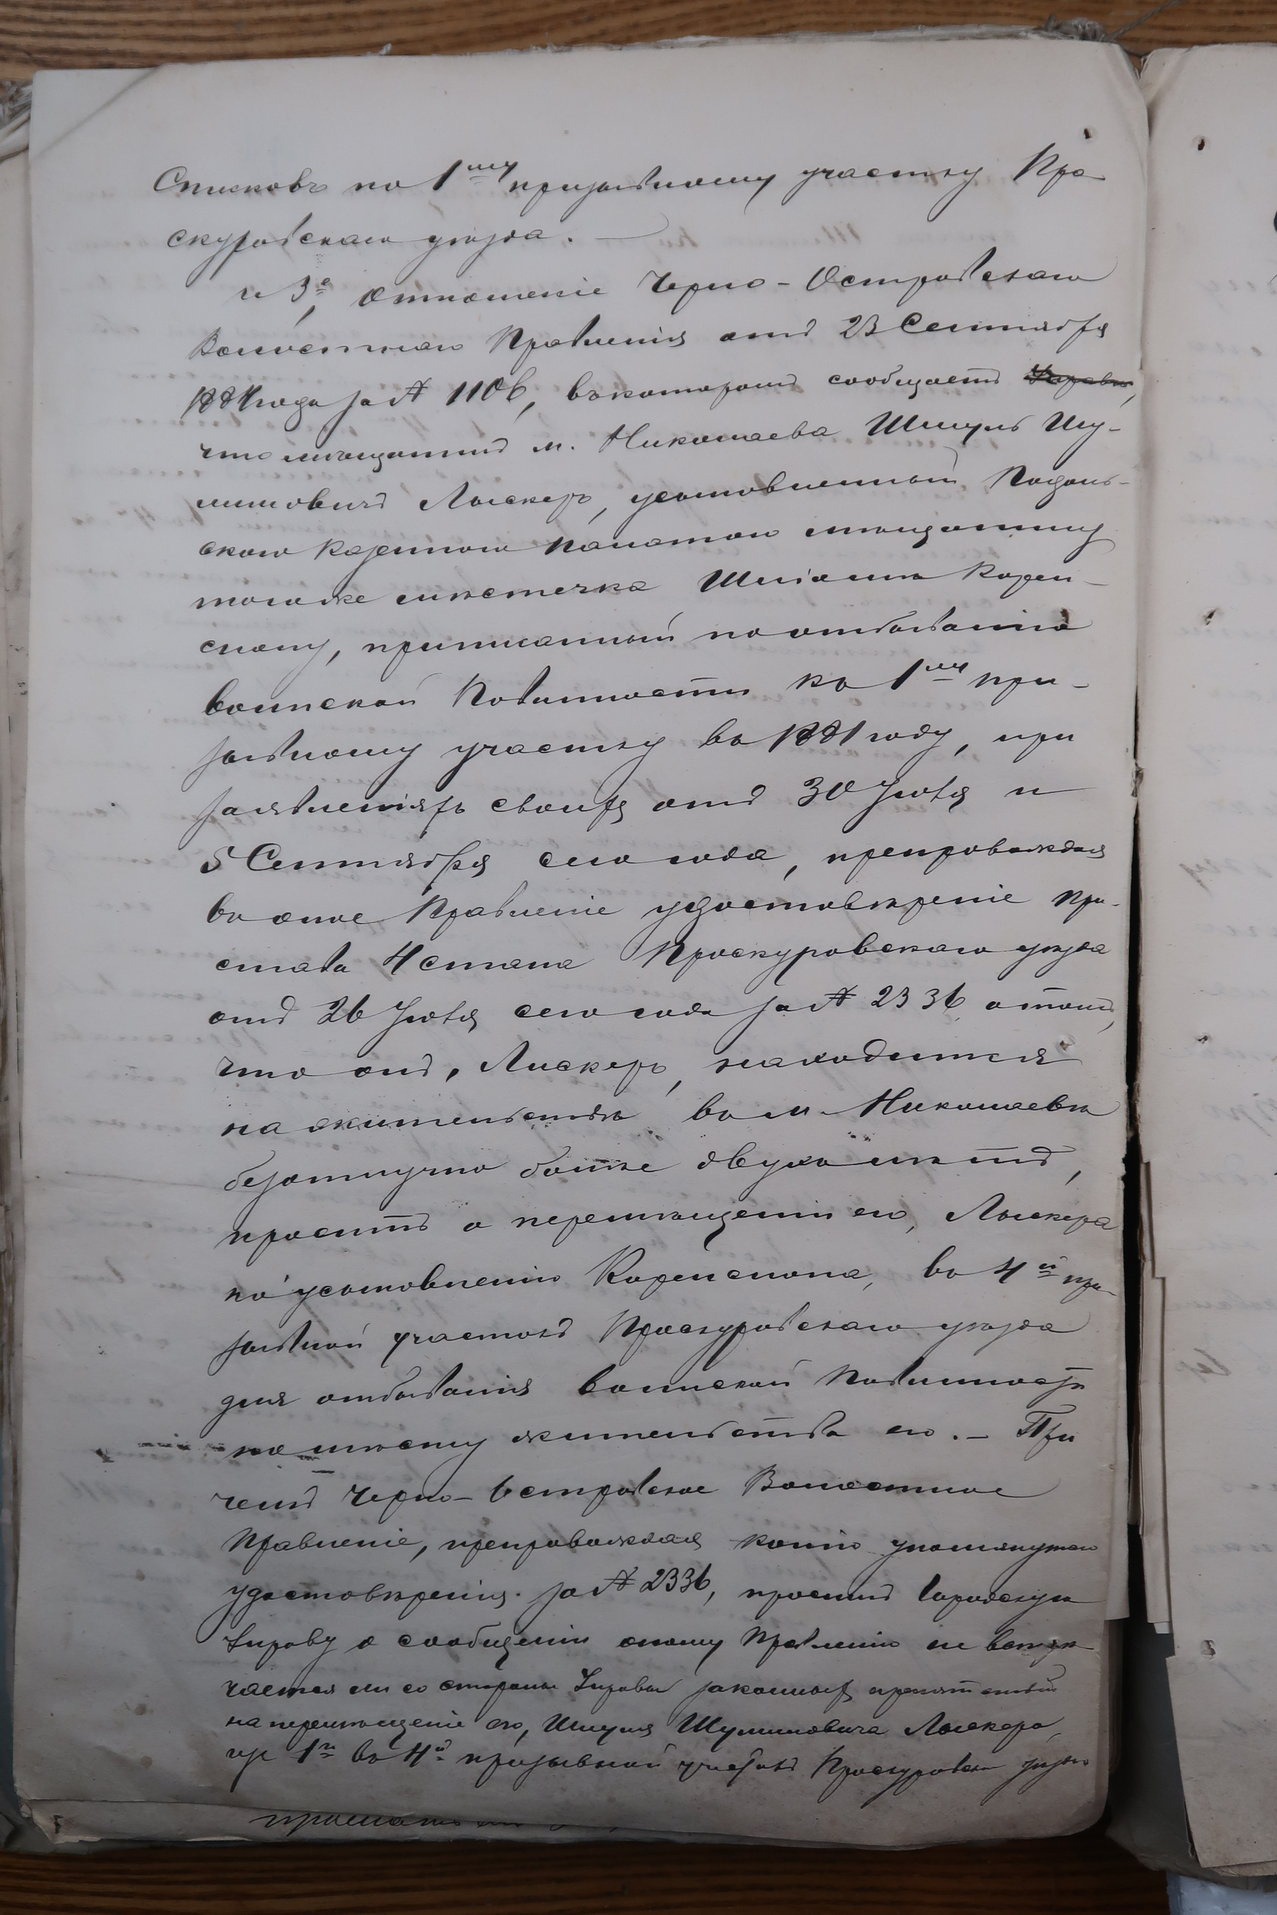 Списковъ по 1му призывному участку Про-
скуровскаго уѣзда. —
и 3е, отношеніе Черно-Островскаго
Волостнаго Правленія отъ 23 Сентября
1881 года за № 1106, въ которомъ сообщаетъ
что мѣщанинъ м. Николаева Шмуль Шу-
лимовичъ Лыскеръ, усыновленный Подоль-
скою Казенною Палатою мѣщанину
того же мѣстечка
приписанный по отбыванію
воинской Повинности къ 1му при-
зывному участку въ 1881 году, при
заявленіяхъ своихъ отъ 30 Іюля и
5 Сентября сего года, препровождая
въ оное Правленіе удостовѣреніе При-
става 4 стана Проскуровскаго уѣзда
отъ 26 Іюля сего года за № 2336 о томъ,
что онъ, Лискеръ, находится
на жительствѣ въ м. Николаевѣ
безотлучно болѣе двухъ лѣтъ,
проситъ о перемѣщеніи его, Лыскера
по усыновленію въ 4й при-
зывной участокъ Проскуровскаго уѣзда
для отбыванія воинской Повинности
по мѣсту жительства его. — При
чемъ Черно-Островское Волостное
Правленіе, препровождая копію упомянутаго
удостовѣренія за № 2336, проситъ Городскую
Управу о сообщеніи оному Правленію не встрѣ-
чается ли со стороны Управы законныхъ препятствій
на перемѣщеніе его, Шмуля Шулимовича Лыскера,
изъ 1го въ 4й призывной участокъ Проскуровск. уѣзда